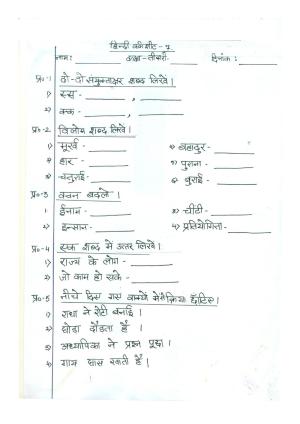 हिन्दी वर्कशीट - 2
नाम: कक्षा - तीसरी दिनांक:
प्र०-1 दो-दो संयुक्ताक्षर शब्द लिखें।
1) स्स - ,
2) क्क - ,
प्र०-2 विलोम शब्द लिखें।
1) मूर्ख - 4) बहादुर -
2) हार - 5) पुराना -
3) चतुराई - 6) बुराई -
प्र०-3 वचन बदलें।
1) ईनाम - 3) चींटी -
2) इन्सान - 4) प्रतियोगिता -
प्र०-4 एक शब्द में उत्तर लिखें।
1) राज्य के लोग -
2) जो काम हो सके -
प्र०-5 नीचे दिए गए वाक्यों में क्रिया छाँटिए।
1) राधा ने रोटी बनाई।
2) घोड़ा दौड़ता है।
3) अध्यापिका ने प्रश्न पूछा।
4) गाय घास चरती है।